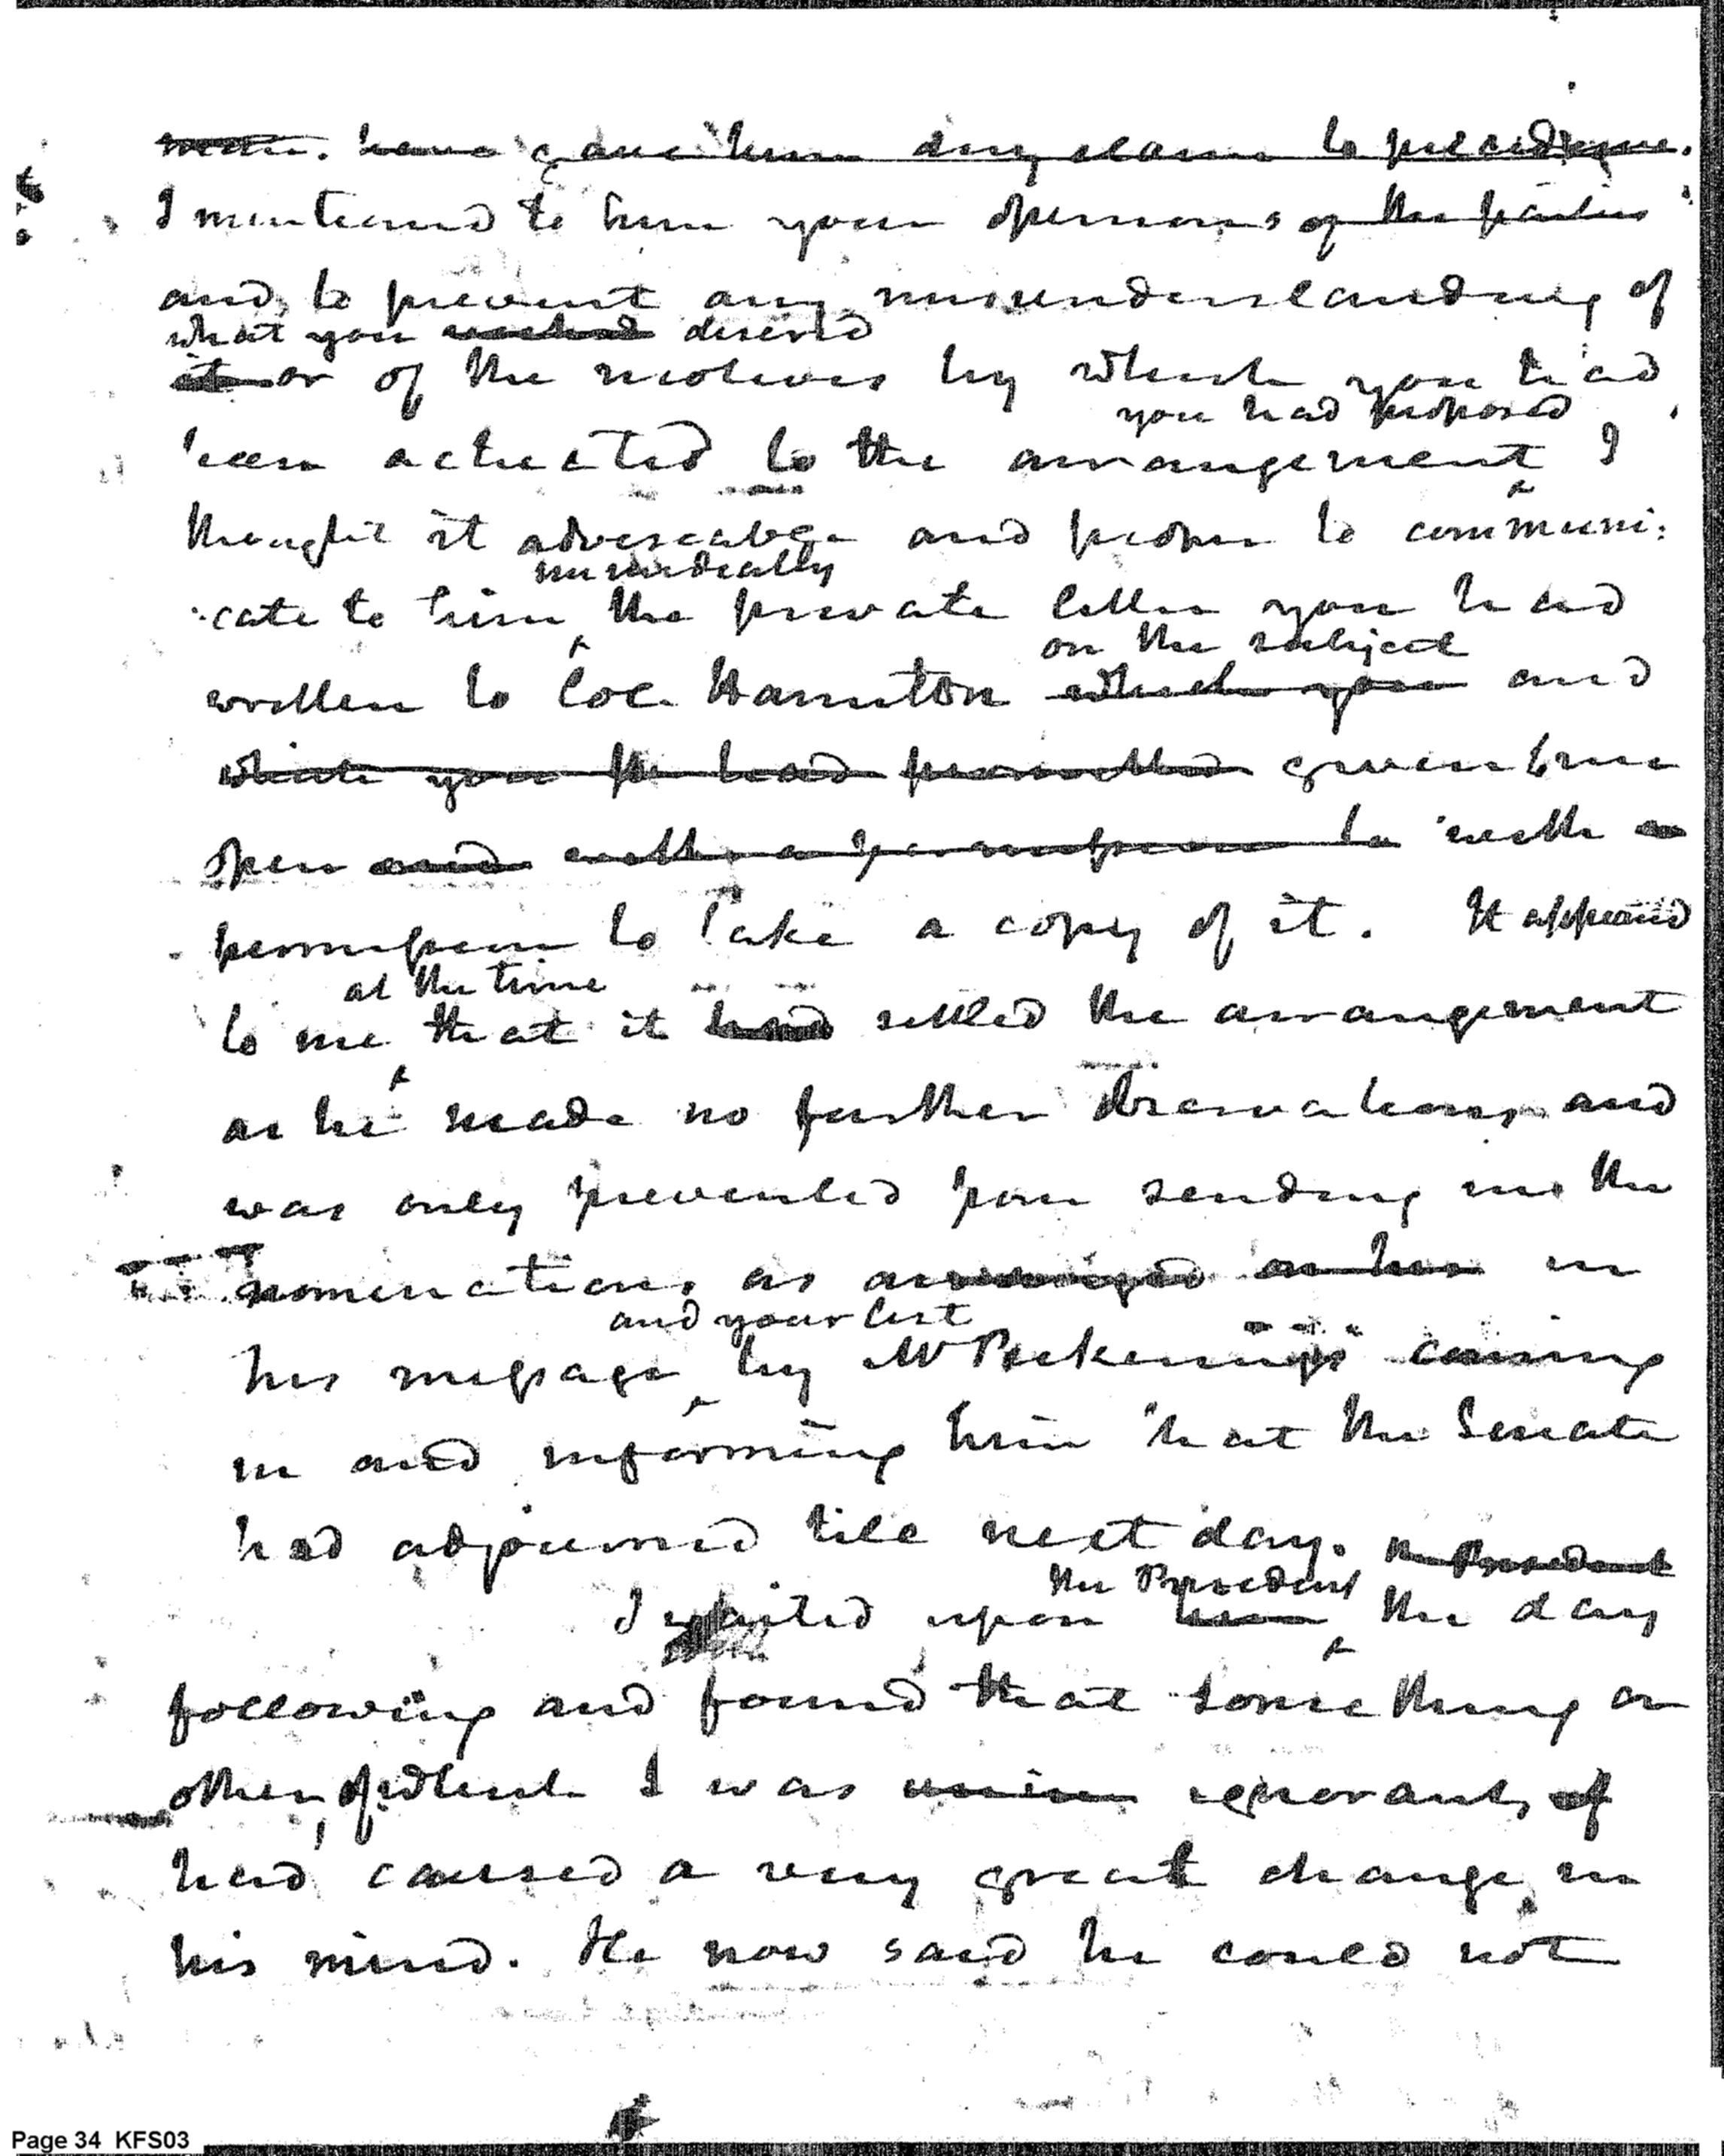 gave him any claim to precedence.
I mentioned to him your opinions of the parties
and, to prevent any misunderstanding of
what you wished desired
it or of the motives by which you had
you had proposed
been actuated to the arrangement I
thought it adviseable and proper to communi:
immediately
:cate to him the private letter you had
on the subject
written to Col. Hamilton which you and
which you had permitted given me
open and with a permission to with a
permission to take a copy of it. It appeared
at the time
to me that it had settled the arrangement
as he made no further observations, and
was only prevented from sending in the
nominations as arranged in
and your list
his message by Mr Pickering's coming
in and informing him that the Senate
had adjourned till next day. The President
the President
I waited upon him the day
following and found that something or
other, of which I was ignorant, of
had caused a very great change in
his mind. He now said he could not
Page 34 KFS03